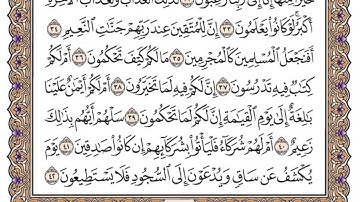 خَيْرًا مِّنْهَآ إِنَّآ إِلَىٰ رَبِّنَا رَٰغِبُونَ ٣٢ كَذَٰلِكَ ٱلْعَذَابُ وَلَعَذَابُ ٱلْءَاخِرَةِ
أَكْبَرُ لَوْ كَانُوا۟ يَعْلَمُونَ ٣٣ إِنَّ لِلْمُتَّقِينَ عِندَ رَبِّهِمْ جَنَّٰتِ ٱلنَّعِيمِ ٣٤
أَفَنَجْعَلُ ٱلْمُسْلِمِينَ كَٱلْمُجْرِمِينَ ٣٥ مَا لَكُمْ كَيْفَ تَحْكُمُونَ ٣٦ أَمْ لَكُمْ
كِتَٰبٌ فِيهِ تَدْرُسُونَ ٣٧ إِنَّ لَكُمْ فِيهِ لَمَا تَخَيَّرُونَ ٣٨ أَمْ لَكُمْ أَيْمَٰنٌ عَلَيْنَا
بَٰلِغَةٌ إِلَىٰ يَوْمِ ٱلْقِيَٰمَةِ إِنَّ لَكُمْ لَمَا تَحْكُمُونَ ٣٩ سَلْهُمْ أَيُّهُم بِذَٰلِكَ
زَعِيمٌ ٤٠ أَمْ لَهُمْ شُرَكَآءُ فَلْيَأْتُوا۟ بِشُرَكَآئِهِمْ إِن كَانُوا۟ صَٰدِقِينَ ٤١ يَوْمَ
يُكْشَفُ عَن سَاقٍ وَيُدْعَوْنَ إِلَى ٱلسُّجُودِ فَلَا يَسْتَطِيعُونَ ٤٢